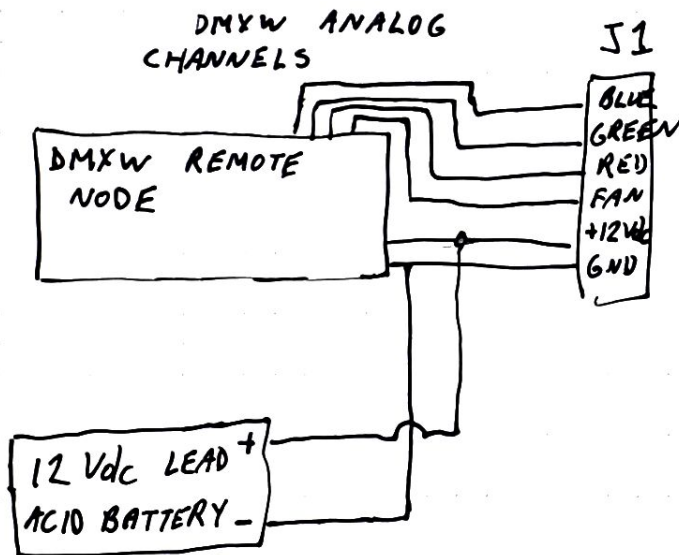 DMXW ANALOG
CHANNELS
J1
BLUE
GREEN
RED
FAN
+12Vdc
GND
DMXW REMOTE
NODE
12 Vdc LEAD +
ACID BATTERY -